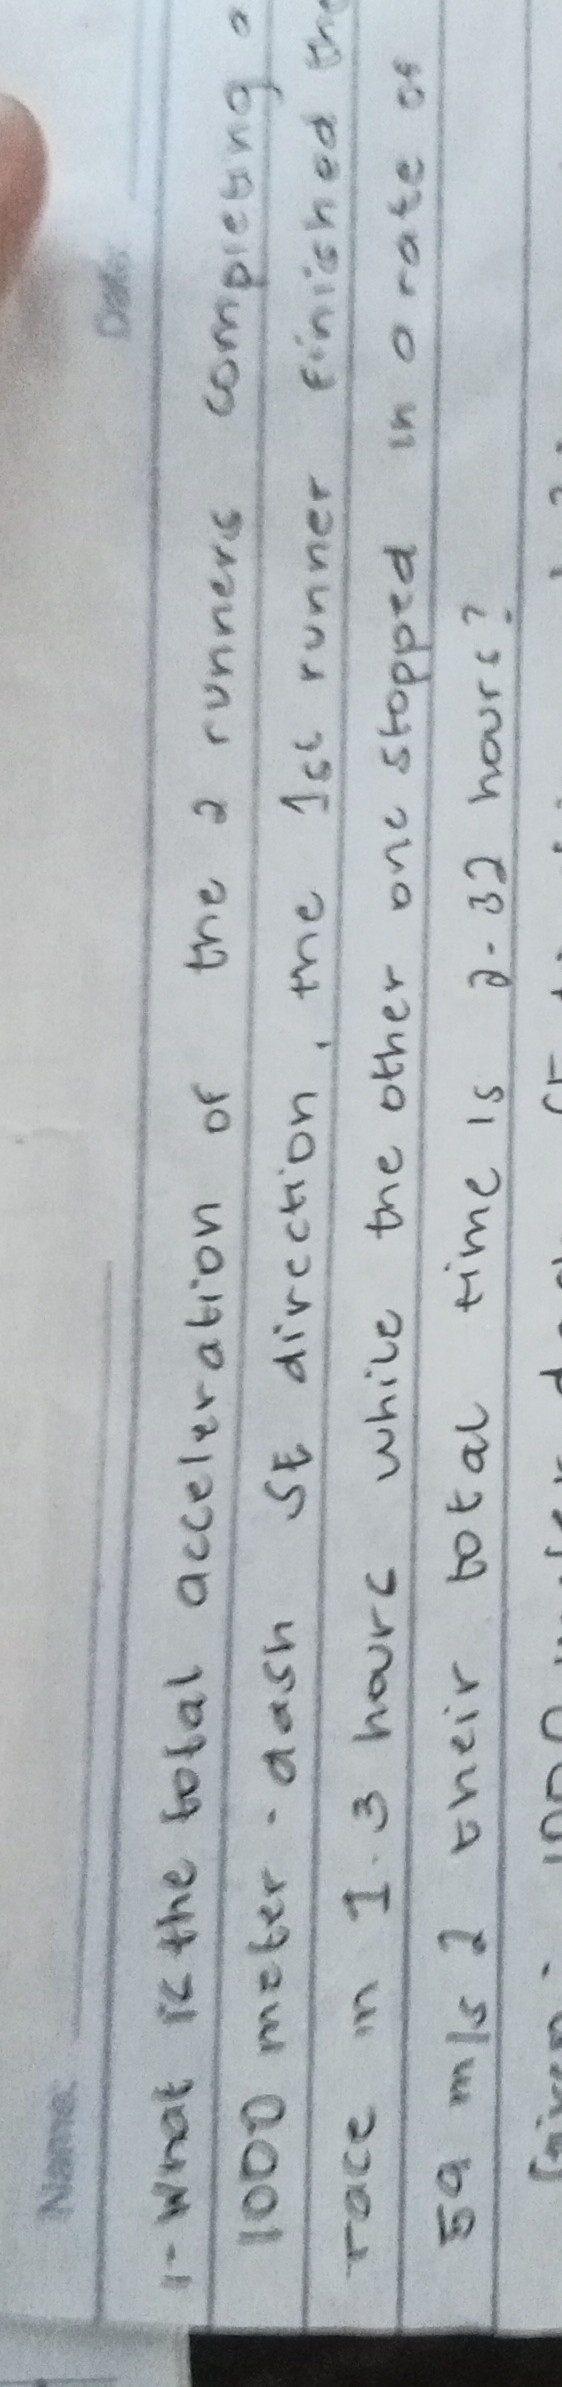 Name:
Date:
1- What is the total acceleration of the 2 runners completing a
1000 meter - dash SE direction, the 1st runner finished the
race in 1.3 hours while the other one stopped in a rate of
59 m/s 2 their total time is 2.32 hours?
Given: 1000